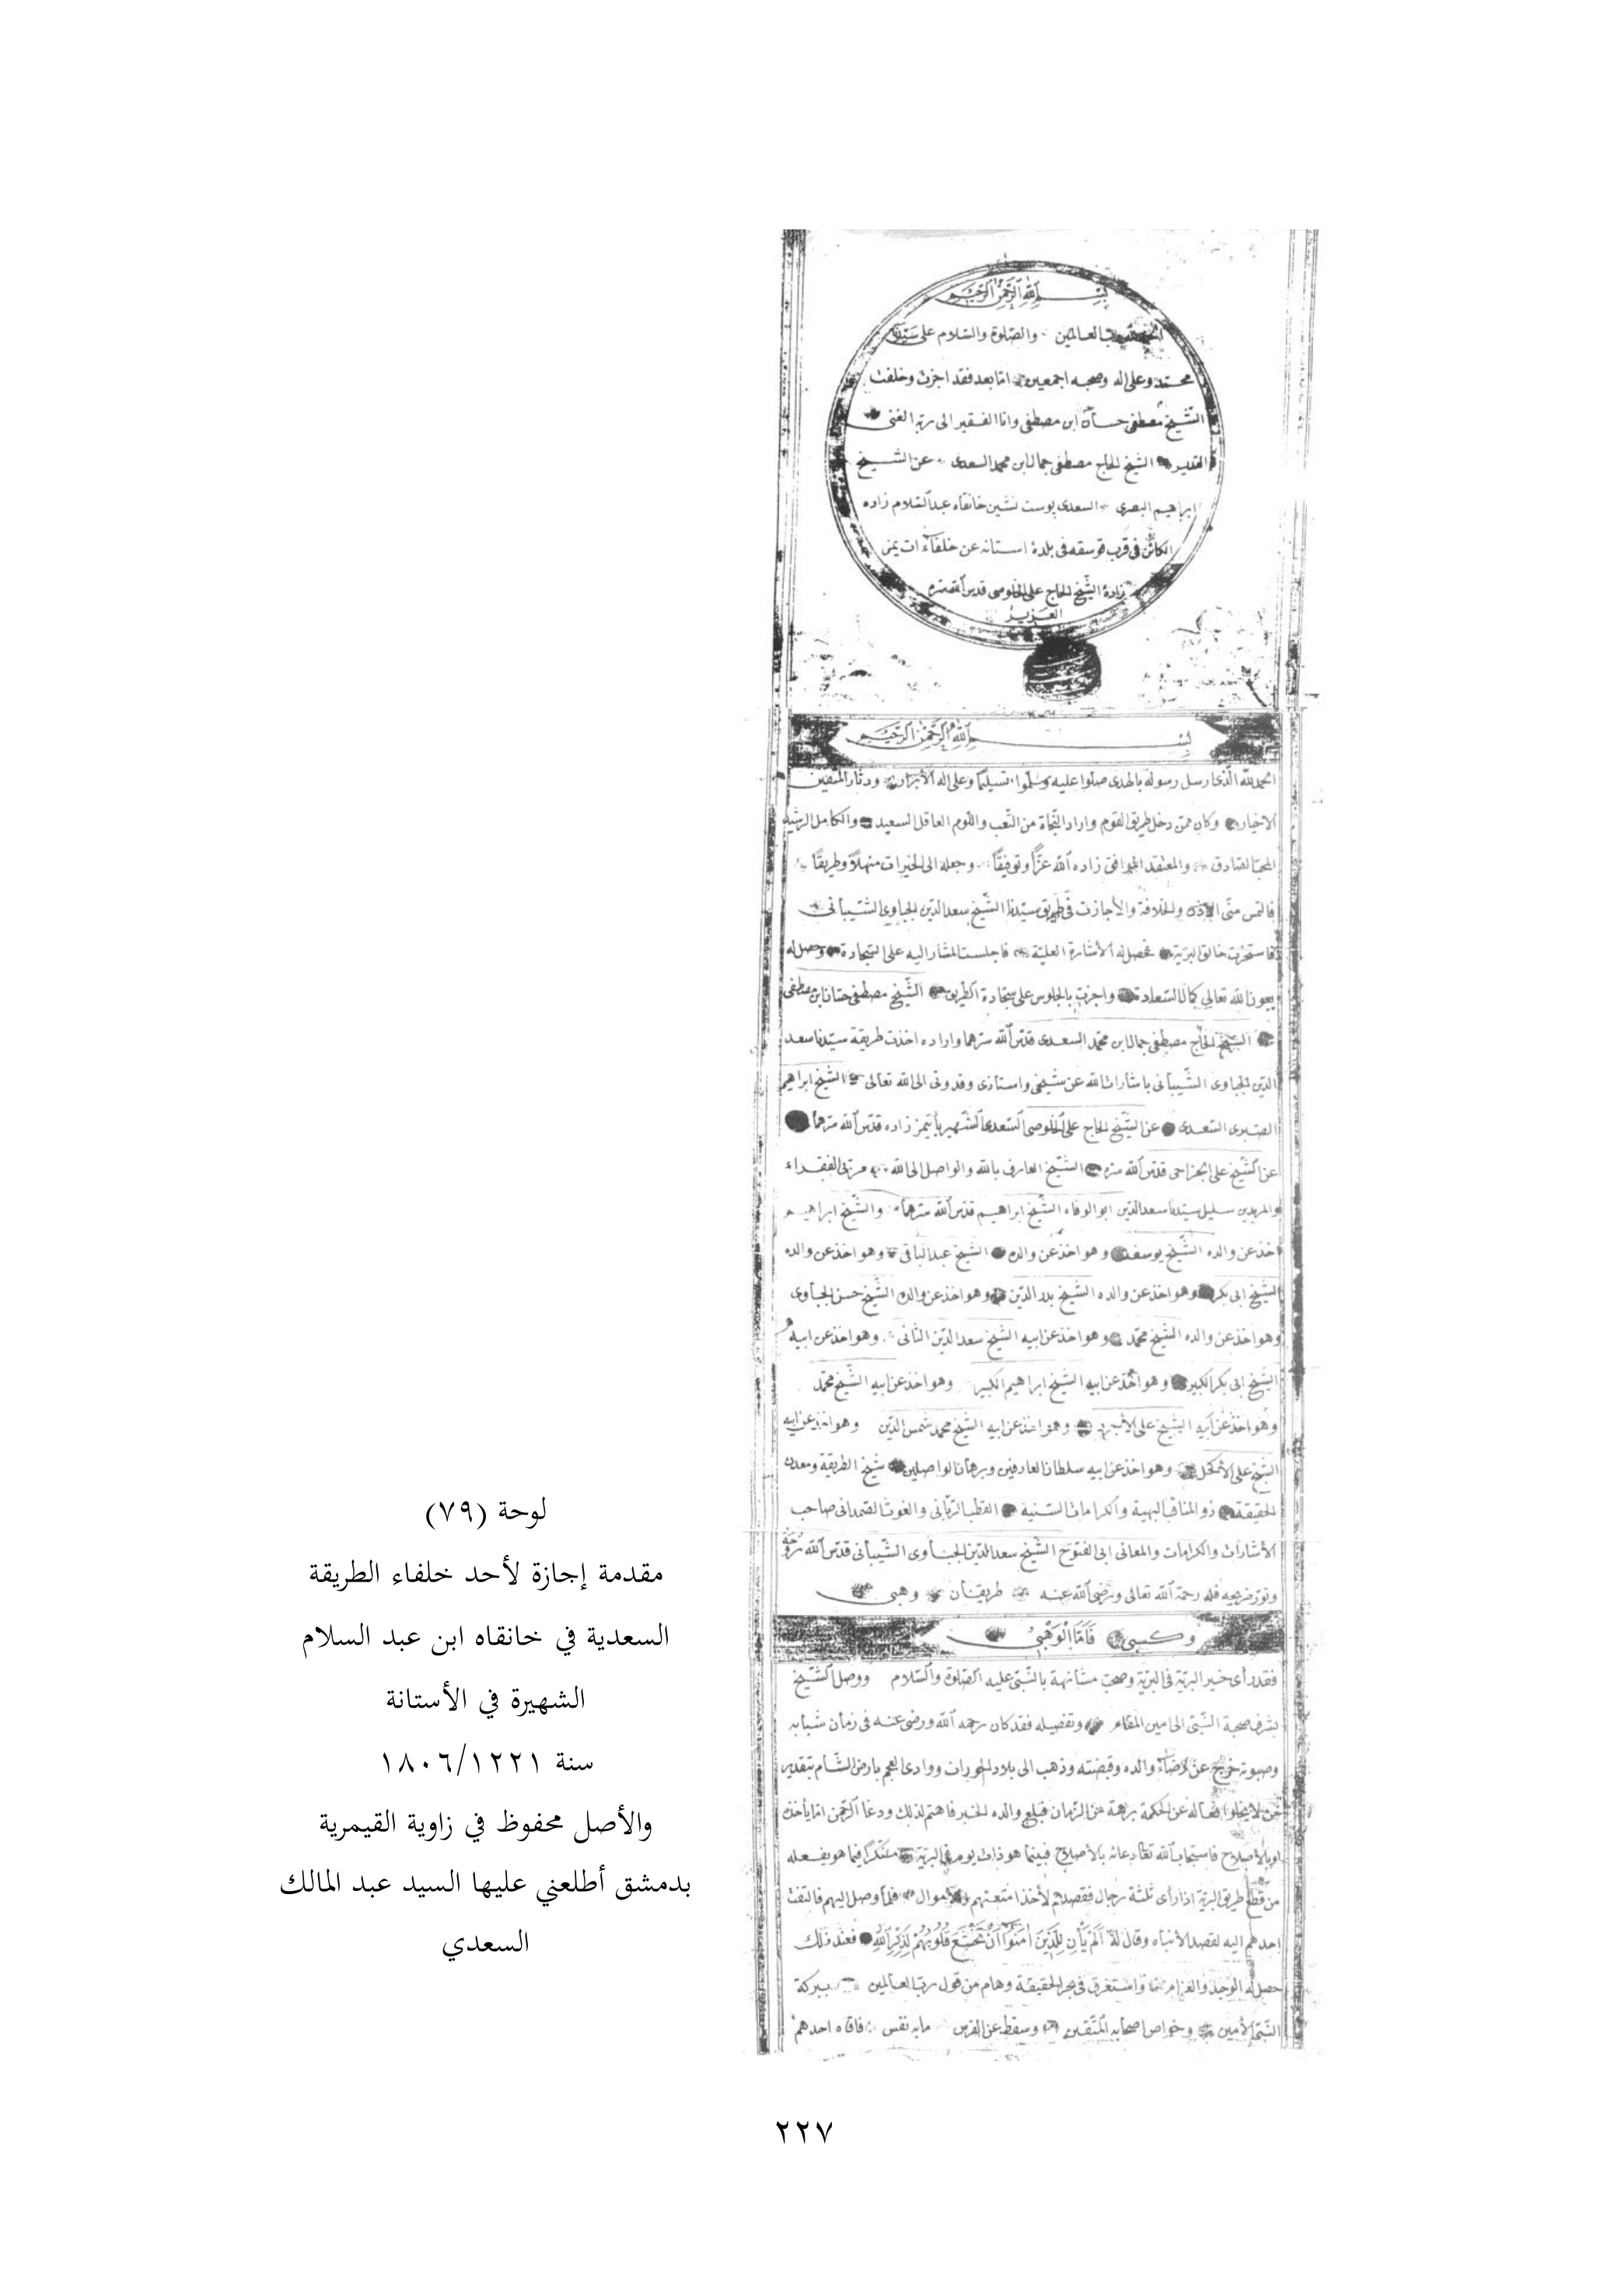 بسم الله الرحمن الرحيم
رب العالمين والصلوة والسلام على سيدنا
محمد وعلى اله وصحبه اجمعين اما بعد فقد اجزت وخلفت
الشيخ مصطفى حسان ابن مصطفى وانا الفقير الى ربه الغنى
القدير الشيخ الحاج مصطفى جمال ابن محمد السعدى عن الشيخ
ابراهيم البصرى السعدى پوست نشين خانقاه عبد السلام زاده
الكائن فى قرب فى بلدة استانه عن خلفاء ات يمز
زادة الشيخ الحاج على الخلوصى قدس الله سره
العزيز
بسم الله الرحمن الرحيم
الحمد لله الذى ارسل رسوله بالهدى صلوا عليه وسلموا تسليما وعلى اله الأبرار ودثار المتقين
الاخيار وكان ممن دخل طريق القوم واراد النجاة من التعب واللوم العاقل السعيد والكامل الرشيد
المحب الصادق والمعتقد الموافق زاده الله عزًّا وتوفيقًا وجعله الى الخيرات منهلاً وطريقًا
فالتمس منى الاذن والخلافة والأجازت فى طريق سيدنا الشيخ سعد الدين الجباوى الشيبانى
فاستخرت خالق البرية فحصل له الأشارة العلية فاجلست المشار اليه على السجادة وحصل له
بعون الله تعالى كمال السعادة واجزت بالجلوس على سجادة الطريق الشيخ مصطفى حسان ابن مصطفى
الشيخ الحاج مصطفى جمال ابن محمد السعدى قدس الله سرهما واراده اخذت طريقة سيدنا سعد
الدين الجباوى الشيبانى باشارات الله عن شيخى واستاذى وقدوتى الى الله تعالى الشيخ ابراهيم
السعدى عن الشيخ الحاج على الخلوصى السعدى الشهير بأتيمز زاده قدس الله سرهما
عن الشيخ على قدس الله سره الشيخ العارف بالله والواصل الى الله مربى الفقراء
والمريدين سليل سيدنا سعد الدين ابو الوفاء الشيخ ابراهيم قدس الله سرهما والشيخ ابراهيم
اخذ عن والده الشيخ يوسف وهو اخذ عن والده الشيخ عبد الباقى وهو اخذ عن والده
الشيخ ابى بكر وهو اخذ عن والده الشيخ بدر الدين وهو اخذ عن والده الشيخ حسن الجباوى
وهو اخذ عن والده الشيخ محمد وهو اخذ عن ابيه الشيخ سعد الدين الثانى وهو اخذ عن ابيه
الشيخ ابى بكر الكبير وهو اخذ عن ابيه الشيخ ابراهيم الكبير وهو اخذ عن ابيه الشيخ محمد
وهو اخذ عن ابيه الشيخ على وهو اخذ عن ابيه الشيخ محمد شمس الدين وهو اخذ عن ابيه
الشيخ على الأكحل وهو اخذ عن ابيه سلطان العارفين وبرهان الواصلين شيخ الطريقة ومعدن
الحقيقة ذو المناقب البهية والكرامات السنية القطب الربانى والغوث الصمدانى صاحب
الأشارات والكرامات والمعانى ابى الفتوح الشيخ سعد الدين الجباوى الشيبانى قدس الله روحه
ونور ضريحه فله رحمة الله تعالى ورضى الله عنه طريقتان وهبى
وكسبى فاما الوهبى
فقد رأى خير البرية فى البرية وصحت مشافهة بالنبى عليه الصلوة والسلام ووصل الشيخ
بشرف صحبة النبى الى المقام وتفصيله فقد كان رحمه الله ورضى عنه فى زمان شبابه
وصبوته خرج عن والده وقبضته وذهب الى بلاد الحوران ووادى العجم بارض الشام بتقدير
من لا يخلو فعاله عن الحكمة برهة من الزمان فبلغ والده الخبر فاهتم لذلك ودعا الرحمن اما يأخذه
او بالأصلاح فاستجاب الله دعائه بالأصلاح فبينما هو ذات يوم فى البرية متفكرًا فيما هو يفعله
من قطع طريق البرية اذا رأى ثلثة رجال فقصدهم لأخذ امتعتهم والأموال فلما وصل اليهم فالتفت
احدهم اليه لقصد الأنتباه وقال له أَلَمْ يَأْنِ لِلَّذِينَ اٰمَنُوٓا أَنْ تَخْشَعَ قُلُوبُهُمْ لِذِكْرِ اللهِ فعند ذلك
حصل له الوجد والغرام واستغرق فى بحر الحقيقة وهام من قول رب العالمين ببركة
النبى الأمين وخواص اصحابه المتقين وسقط عن الفرس ما به نفس فافاه احدهم
لوحة (٧٩)
مقدمة إجازة لأحد خلفاء الطريقة
السعدية في خانقاه ابن عبد السلام
الشهيرة في الأستانة
سنة ١٨٠٦/١٢٢١
والأصل محفوظ في زاوية القيمرية
بدمشق أطلعني عليها السيد عبد المالك
السعدي
٢٢٧